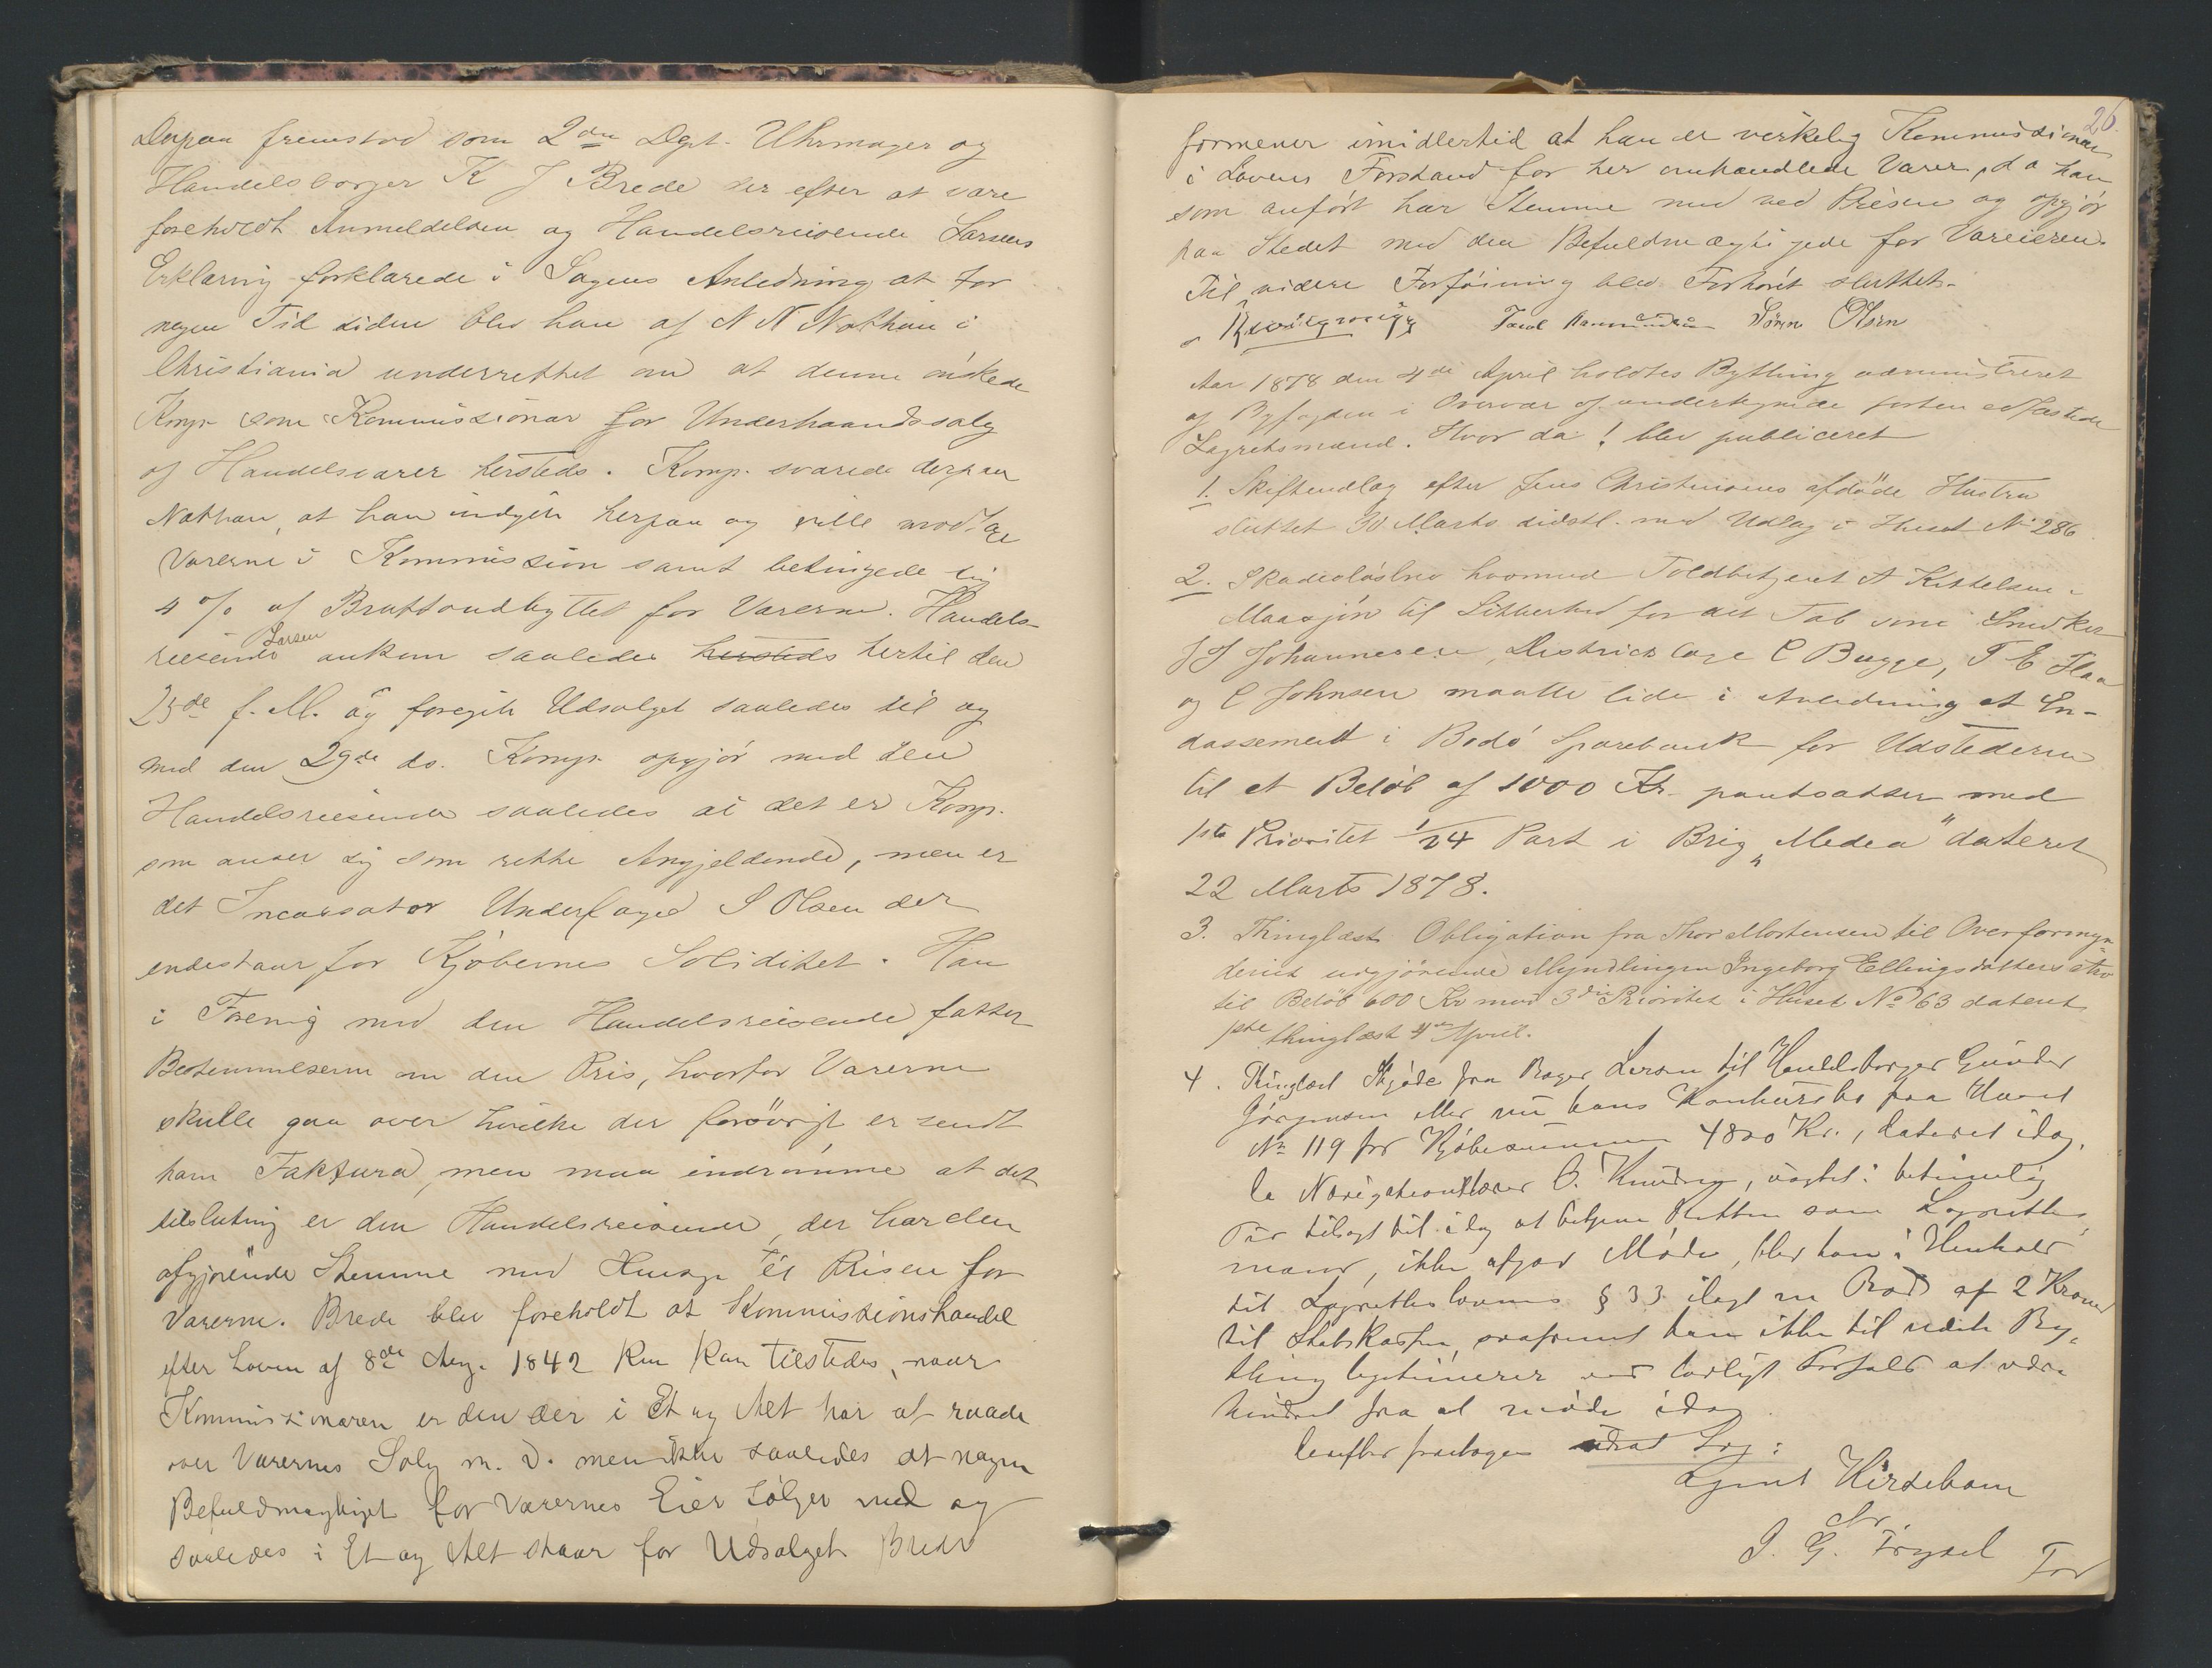 Derpaa fremstod som 2den Dpt. Uhrmager og
Handelsborger K J Brede der efter at være
foreholdt Anmeldelsen og Handelsreisende Larsens
Erklæring forklarede i Sagens Anledning at for
nogen Tid siden blev han af N N Nathan i
Christiania underrettet om at denne ønskede
Komp. som Kommissionær for Underhaandssalg
af Handelsvarer hersteds. Komp. svarede derpaa
Nathan, at han indgik herpaa og vilde modtage
Varerne i Kommission samt betingede sig
4 % af Bruttoudbyttet for Varerne. Handels-
reisende Larsen ankom saaledes hersteds hertil den
23de f. M. og foregik Udsalget saaledes til og
med den 29de ds. Komp. opgjør med den
Handelsreisende saaledes at det er Komp.
som anser sig som rette Angjeldende, men er
det Incassator Underfoged S Olsen der
indestaar for Kjøbernes Soliditet. Han
i Forening med den Handelsreisende fatter
Bestemmelserne om den Pris, hvorfor Varerne
skulle gaa over hvilke der forøvrigt er sendt
ham Faktura, men maa indrømme at det
tilslutning er den Handelsreisende, der har den
afgjørende Stemme med Hensyn til Prisen for
Varerne. Brede blev foreholdt at Kommissionshandel
efter Loven af 8de Aug. 1842 kun kan tilstedes, naar
Kommissionæren er den der i Et og Alt har at raade
over Varernes Salg m. v. men ikke saaledes at nogen
Befuldmægtiget for Varernes Eier sælger med og
saaledes i Et og Alt staar for Udsalget. Brede
26.
formener imidlertid at han er virkelig Kommissionær
i Lovens Forstand for her omhandlede Varer, da han
som anført har Stemme med ved Prisen og opgjør
paa Stedet med den Befuldmægtigede for Vareieren.
Til videre Forføining blev Forhøret sluttet.
Søren Olsen
Aar 1878 den 4de April holdtes Bything administreret
af Byfogden i Overvær af undertegnede forten edfæstede
Lagretsmænd. Hvor da! blev publiceret
1. Skifteudlæg efter Jens Christensens afdøde Hustru
sluttet 30 Marts sidstl. med Udlæg i Huset No 286.
2. Skadesløsbrev hvormed Toldbetjent A Kittelsen i
Maasjøn til Sikkerhed for det Tab som Snedker
J J Johannesen, Districtslæge C Bugge, T E Haa
og C Johnsen maatte lide i Anledning at En-
dossement i Bodø Sparebank for Udstederen
til et Beløb af 1000 Kr. pantsætter med
1ste Prioritet 1/24 Part i Brig „Medea" dateret
22 Marts 1878.
3. Thinglæst Obligation fra Thor Mortensen til Overformyn-
deriet udgjørende Myndlingen Ingeborg Ellingsdatters Arv
til Beløb 600 Kr mod 3die Prioritet i Huset No 63 dateret
1ste thinglæst 4de April.
4. Thinglæst Skjøde fra Bager Larsen til Handelsborger Gunder
Jørgensen eller nu hans Konkursbo paa Huset
No 119 for Kjøbesummen 4800 Kr., dateret idag.
Da Navigationslærer O. Knudsen, uagtet i betimelig
Tid tilsagt til idag at betjene Retten som Lagrettes-
mand, ikke afgav Møde, blev han i Henhold
til Lagretteslovens § 33 ilagt en Bod af 2 Kroner
til Statskassen, saafremt han ikke til næste By-
thing legitimerer ved lovligt Forfald at være
hindret fra at møde idag.
Derefter foretoges
J. G. Trysel
For